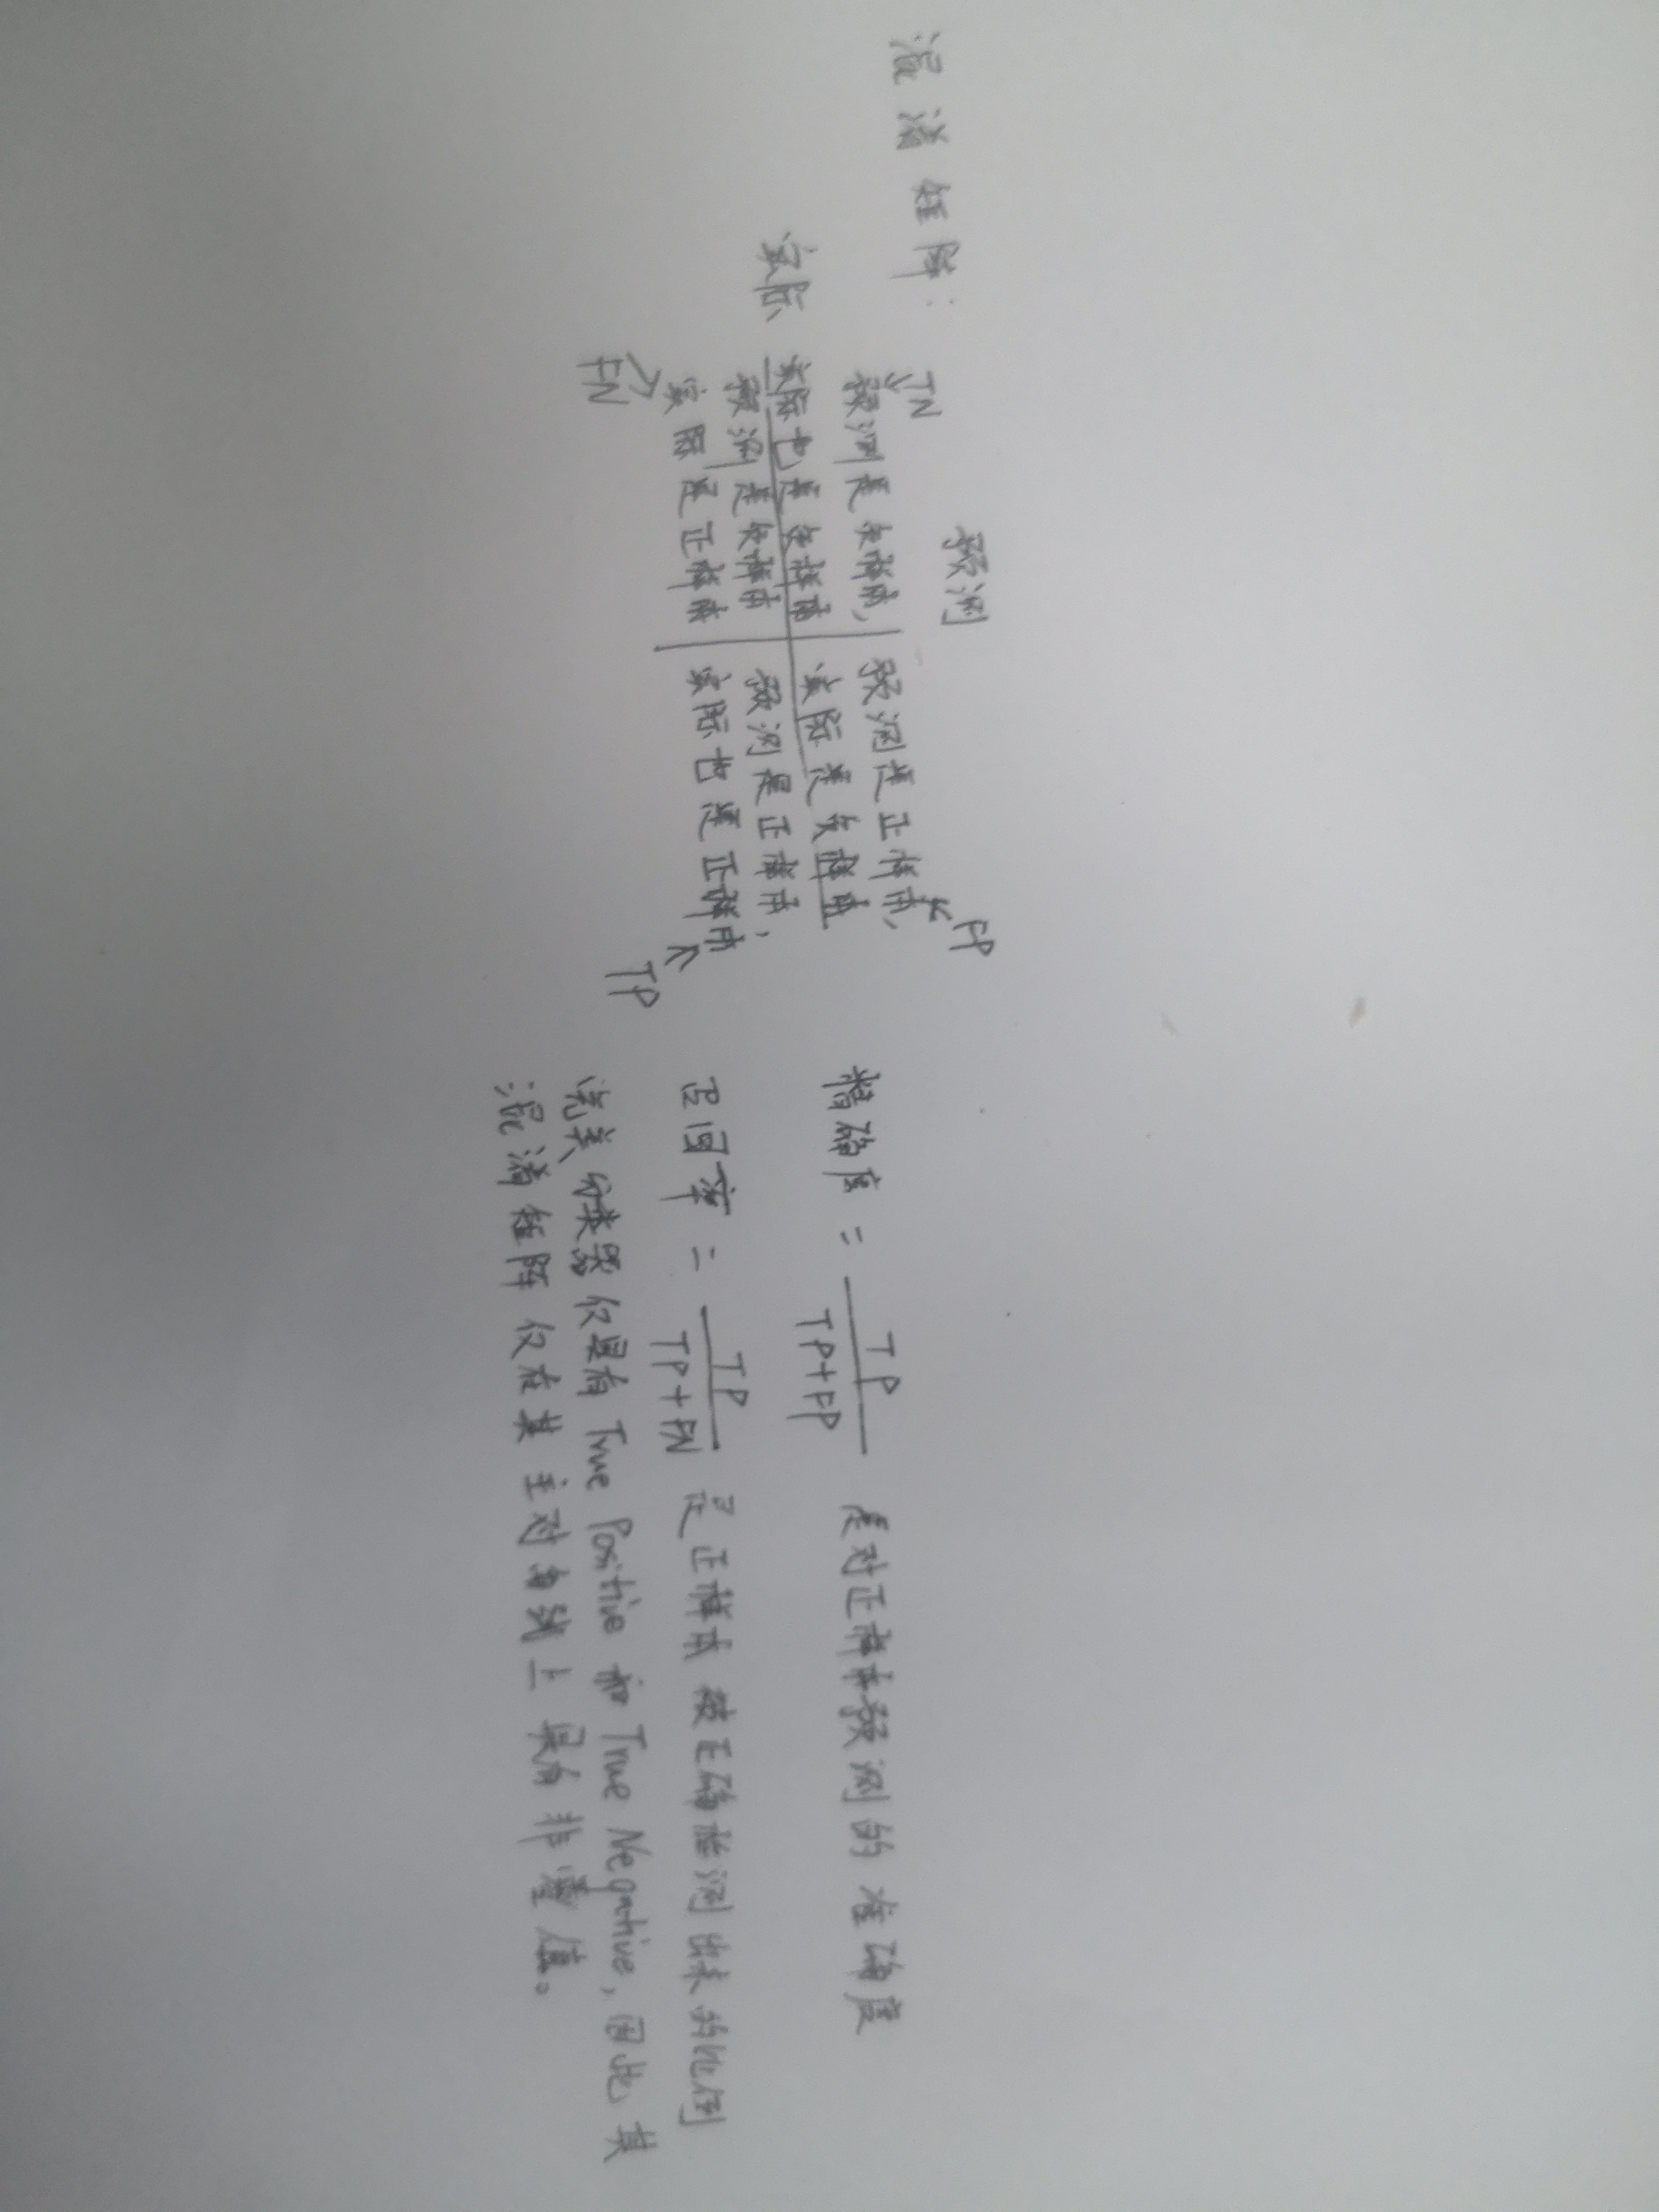 混淆矩阵：
预测
TN
FP
预测是负样本，
预测是正样本，
实际
实际也是负样本
实际是负样本
预测是负样本
预测是正样本，
实际是正样本
实际也是正样本
FN
TP
精确度 = TP / TP+FP 是对正样本预测的准确度
召回率 = TP / TP+FN 是正样本被正确检测出来的比例
完美分类器仅具有 True Positive 和 True Negative，因此其
混淆矩阵仅在其主对角线上具有非零值。